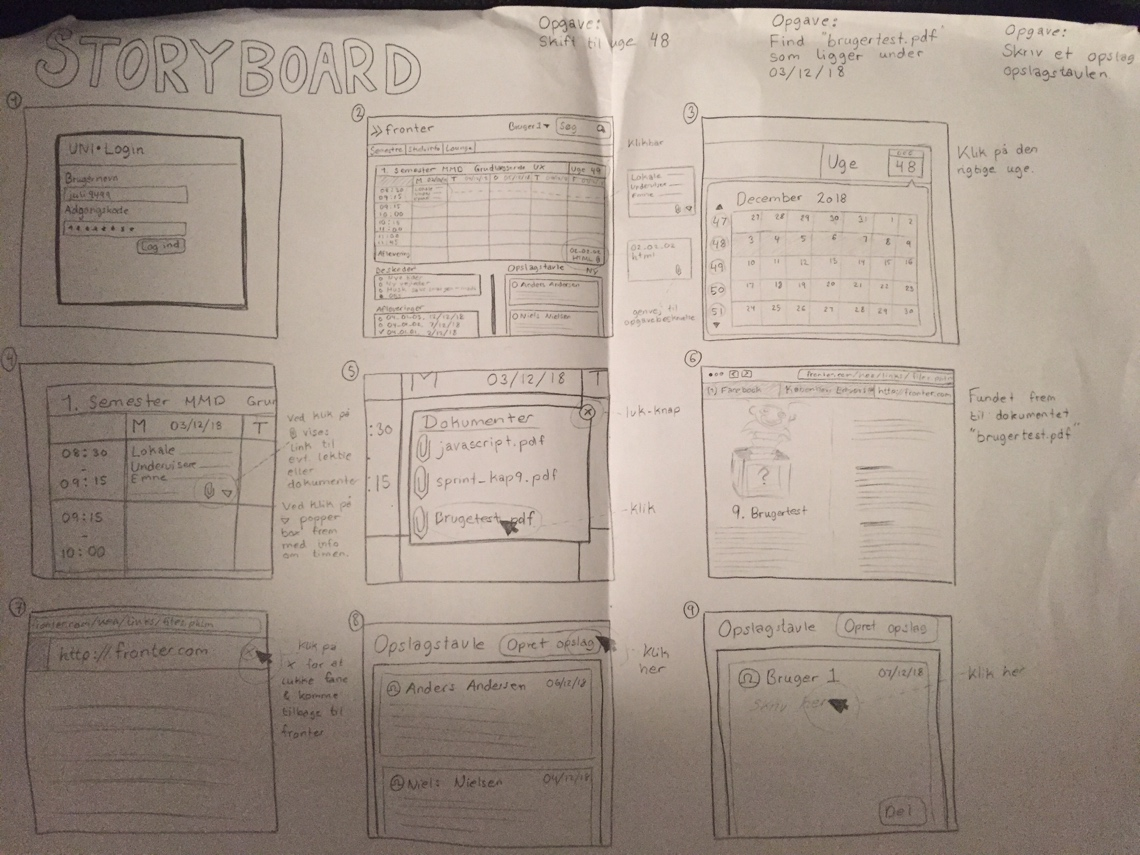 STORYBOARD
Opgave:
Skift til uge 48
Opgave:
Find "brugertest.pdf"
som ligger under
03/12/18
Opgave:
Skriv et opslag
opslagstavlen
1
UNI•Login
Brugernavn
juli9499
Adgangskode
Log ind
2
>>fronter
Bruger1
Søg
Semestre
Studieinfo
Lounge
1. Semester MMD Grundlæggende UX
Uge 49
M
T
T
08:30
09:15
09:15
10:00
10:15
11:00
11:00
11:45
Aflevering
02.03.02
HTML
Beskeder
Opslagstavle
Ny
Anders Andersen
Niels Nielsen
Afleveringer
Klikbar
Lokale
Underviser
Emne
02.03.02
html
genvej til
opgavebeskrivelse
3
Uge
UGE
48
December 2018
47 27 28 29 30 31 1 2
48 3 4 5 6 7 8 9
49 10 11 12 13 14 15 16
50 17 18 19 20 21 22 23
51 24 25 26 27 28 29 30
Klik på den
rigtige uge.
4
1. Semester MMD Grun
M 03/12/18 T
08:30
-
09:15
Lokale
Undervisere
Emne
09:15
-
10:00
Ved klik på
vises
link til
evt. lektie
eller
dokumenter
Ved klik på
popper
box frem
med info
om timen.
5
M 03/12/18 T
:30
:15
Dokumenter
javascript.pdf
sprint_kap9.pdf
Brugetest.pdf
luk-knap
klik
6
(1) Facebook
http://fronter.com
?
9. Brugertest
Fundet frem
til dokumentet
"brugertest.pdf"
7
http://fronter.com
x
Klik på
x for at
lukke fane
& komme
tilbage til
fronter
8
Opslagstavle
Opret opslag
Anders Andersen 06/12/18
Niels Nielsen 04/12/18
Klik
her
9
Opslagstavle
Opret opslag
Bruger 1 07/12/18
Skriv her
Del
Klik her